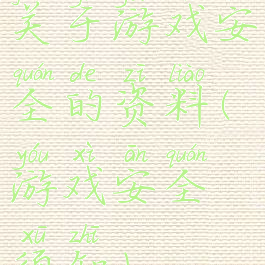 关于游戏安
quán de zī liào
全的资料(
yóu xì ān quán
游戏安全
xū zhī
须知)